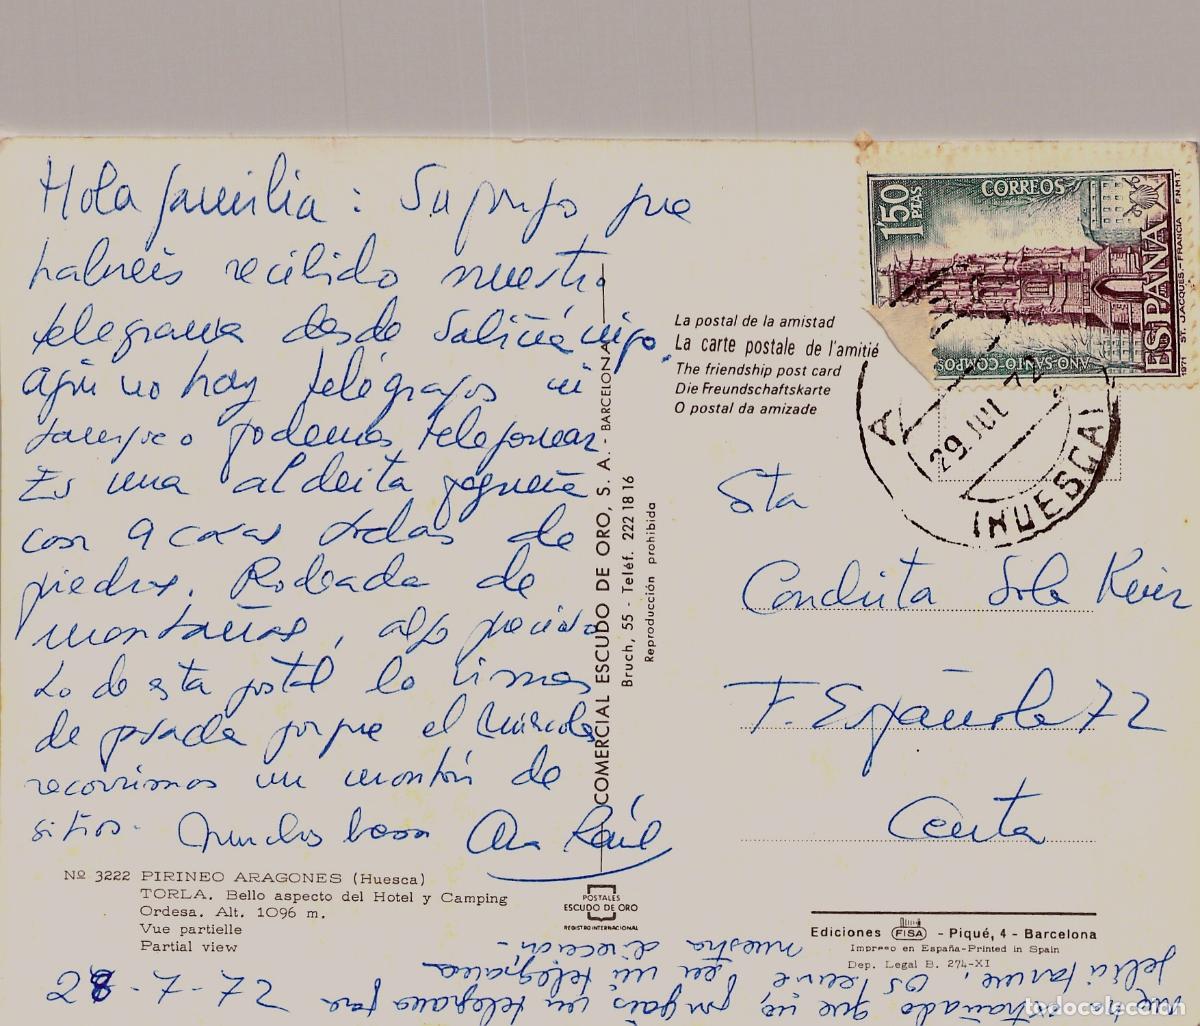 Hola familia: Supongo que
habréis recibido nuestro
telegrama desde Sabiñánigo.
Aquí no hay telégrafos ni
tampoco podemos telefonear
Es una aldeita pequeña
con 4 casas todas de
piedra. Rodeada de
montañas, algo precioso
Lo de esta postal lo vimos
de pasada porque el miércoles
recorrimos un montón de
sitios. Muchos besos Ana Raúl
Nº 3222 PIRINEO ARAGONES (Huesca)
TORLA. Bello aspecto del Hotel y Camping
Ordesa. Alt. 1096 m.
Vue partielle
Partial view
28-7-72
COMERCIAL ESCUDO DE ORO, S. A. - BARCELONA
Bruch, 55 - Teléf. 222 18 16
Reproducción prohibida
POSTALES
ESCUDO DE ORO
REGISTRO INTERNACIONAL
La postal de la amistad
La carte postale de l'amitié
The friendship post card
Die Freundschaftskarte
O postal da amizade
1,50 PTAS
CORREOS
ESPAÑA
AÑO-SANTO-COMPOS
1971 ST. JACQUES.-FRANCIA F.N.M.T.
29 JUL 72
(HUESCA)
Sta
Conchita Sola
F. Española 72
Ceuta
Ediciones FISA - Piqué, 4 - Barcelona
Impreso en España-Printed in Spain
Dep. Legal B. 274-XI
extrañado que no pongáis un telegrama para
felicitarme. Os envié en mi telegrama
nuestra dirección.-
todocoleccion